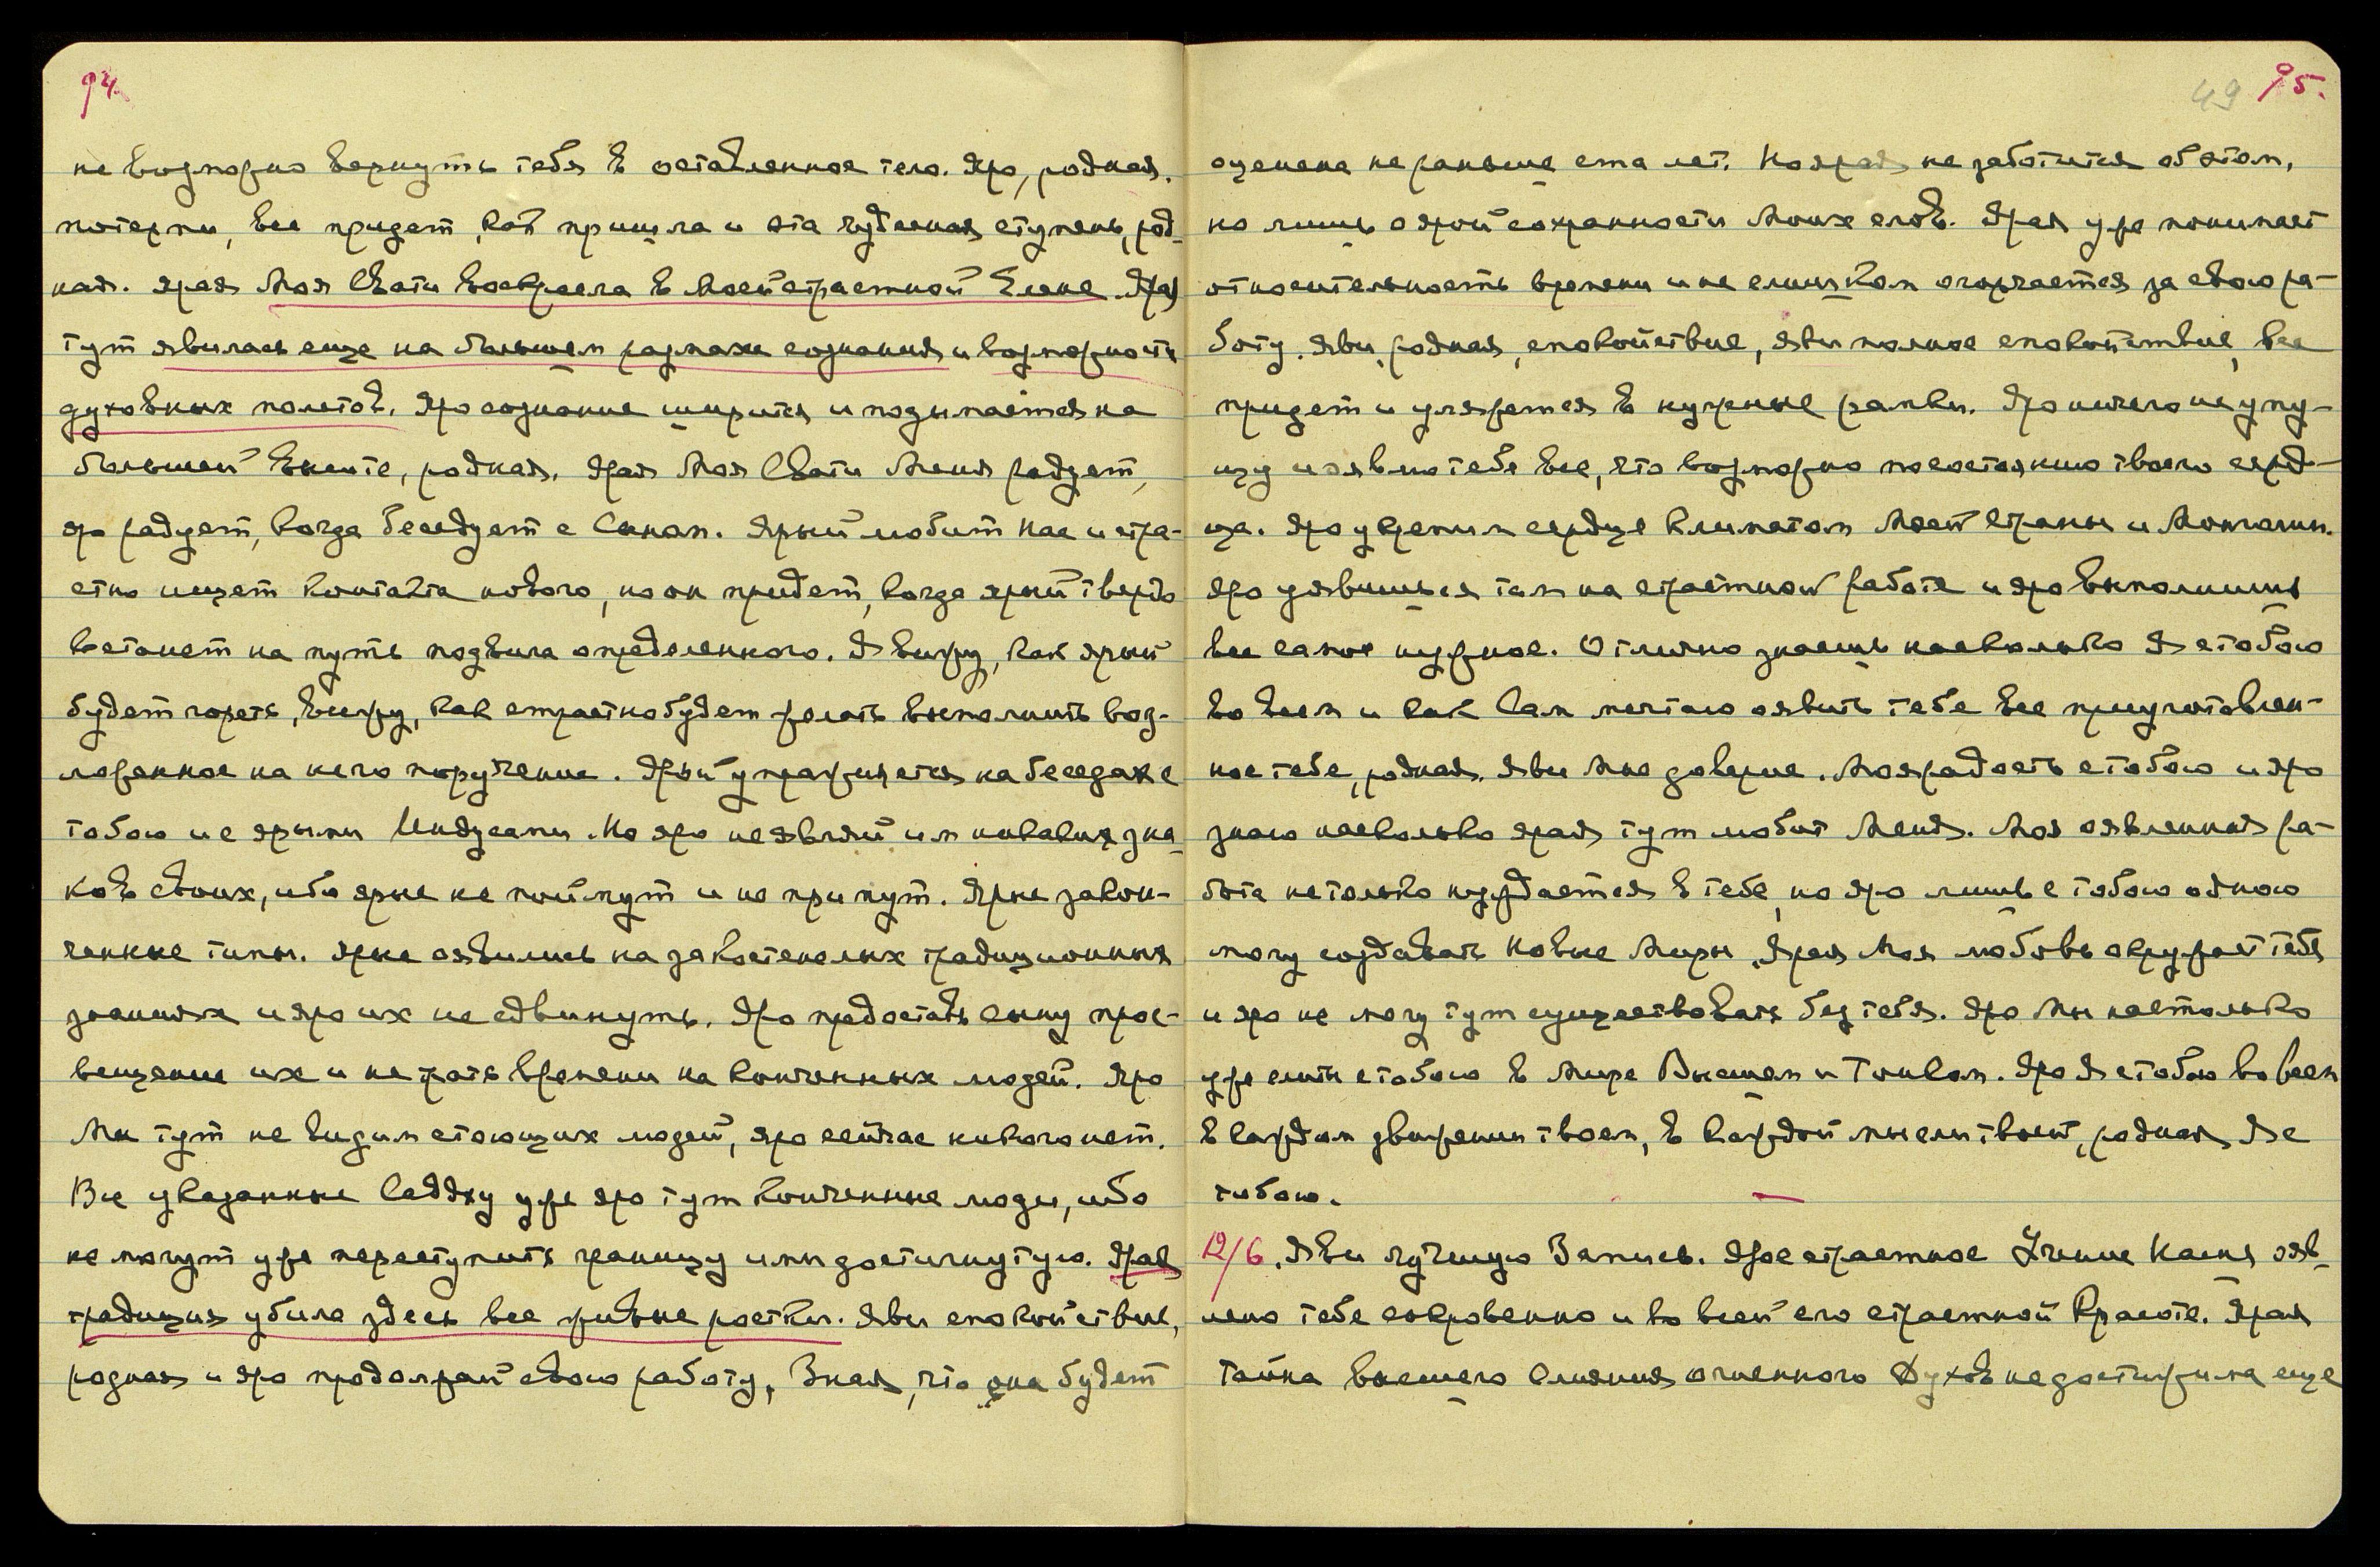 94.
не возможно вернуть тебя в оставленное тело. Яро, родная,
потерпи, все придет, как пришла и эта чудесная ступень, род-
ная. Ярая Моя Свати воскресла в Моей страстной Елене. Ярая
тут явилась еще на большем размахе сознания и возможности
духовных полетов. Яро сознание ширится и подымается на
большей высоте, родная. Ярая Моя Свати Меня радует,
яро радует, когда беседует с Сыном. Ярый любит Нас и стра-
стно ищет контакта нового, но он придет, когда ярый твердо
встанет на путь подвига определенного. Я вижу, как ярый
будет гореть, вижу, как страстно будет желать выполнить воз-
ложенное на него поручение. Ярый упражняется на беседах с
тобою и с ярыми Индусами. Но яро не являй им никаких зна-
ков своих, ибо ярые не поймут и не примут. Ярые закон-
ченные типы. Ярые оявились на закостенелых традиционных
знаниях и яро их не сдвинуть. Яро предоставь сыну прос-
вещение их и не трать времени на конченных людей. Яро
Мы тут не видим стоющих людей, яро сейчас никого нет.
Все указанные Саддху уже яро тут конченные люди, ибо
не могут уже переступить границу ими достигнутую. Ярая
традиция убила здесь все живые ростки. Яви спокойствие,
родная и яро продолжай свою работу, Зная, что она будет
49 95.
оценена не раньше ста лет. Но ярая не заботится об этом,
но лишь о ярой сохранности Моих слов. Ярая уже понимает
относительность времени и не слишком огорчается за свою ра-
боту. Яви, родная, спокойствие, яви полное спокойствие, все
придет и уляжется в нужные рамки. Яро ничего не упу-
щу и оявлю тебе все, что возможно по состоянию твоего серд-
ца. Яро укрепим сердце климатом Моей Страны и Монголии.
Яро уявишься там на страстной работе и яро выполнишь
все самое нужное. Отлично знаешь насколько Я с тобою
во всем и как Сам мечтаю оявить тебе все приуготовлен-
ное тебе, родная. Яви Мне доверие. Моя радость с тобою и яро
знаю насколько ярая тут любит Меня. Моя оявленная ра-
бота не только нуждается в тебе, но яро лишь с тобою одною
могу создавать Новые Миры. Ярая Моя любовь окружает тебя
и яро не могу тут существовать без тебя. Яро Мы настолько
уже слиты с тобою в Мире Высшем и Тонком. Яро Я с тобою во всем
в каждом движении твоем, в каждой мысли твоей, родная Я с
тобою.
12/6. Яви лучшую Запись. Ярое страстное Учение Наше ояв-
лено тебе сокровенно и во всей его страстной Красоте. Ярая
тайна высшего слияния огненного Духов не достижима еще